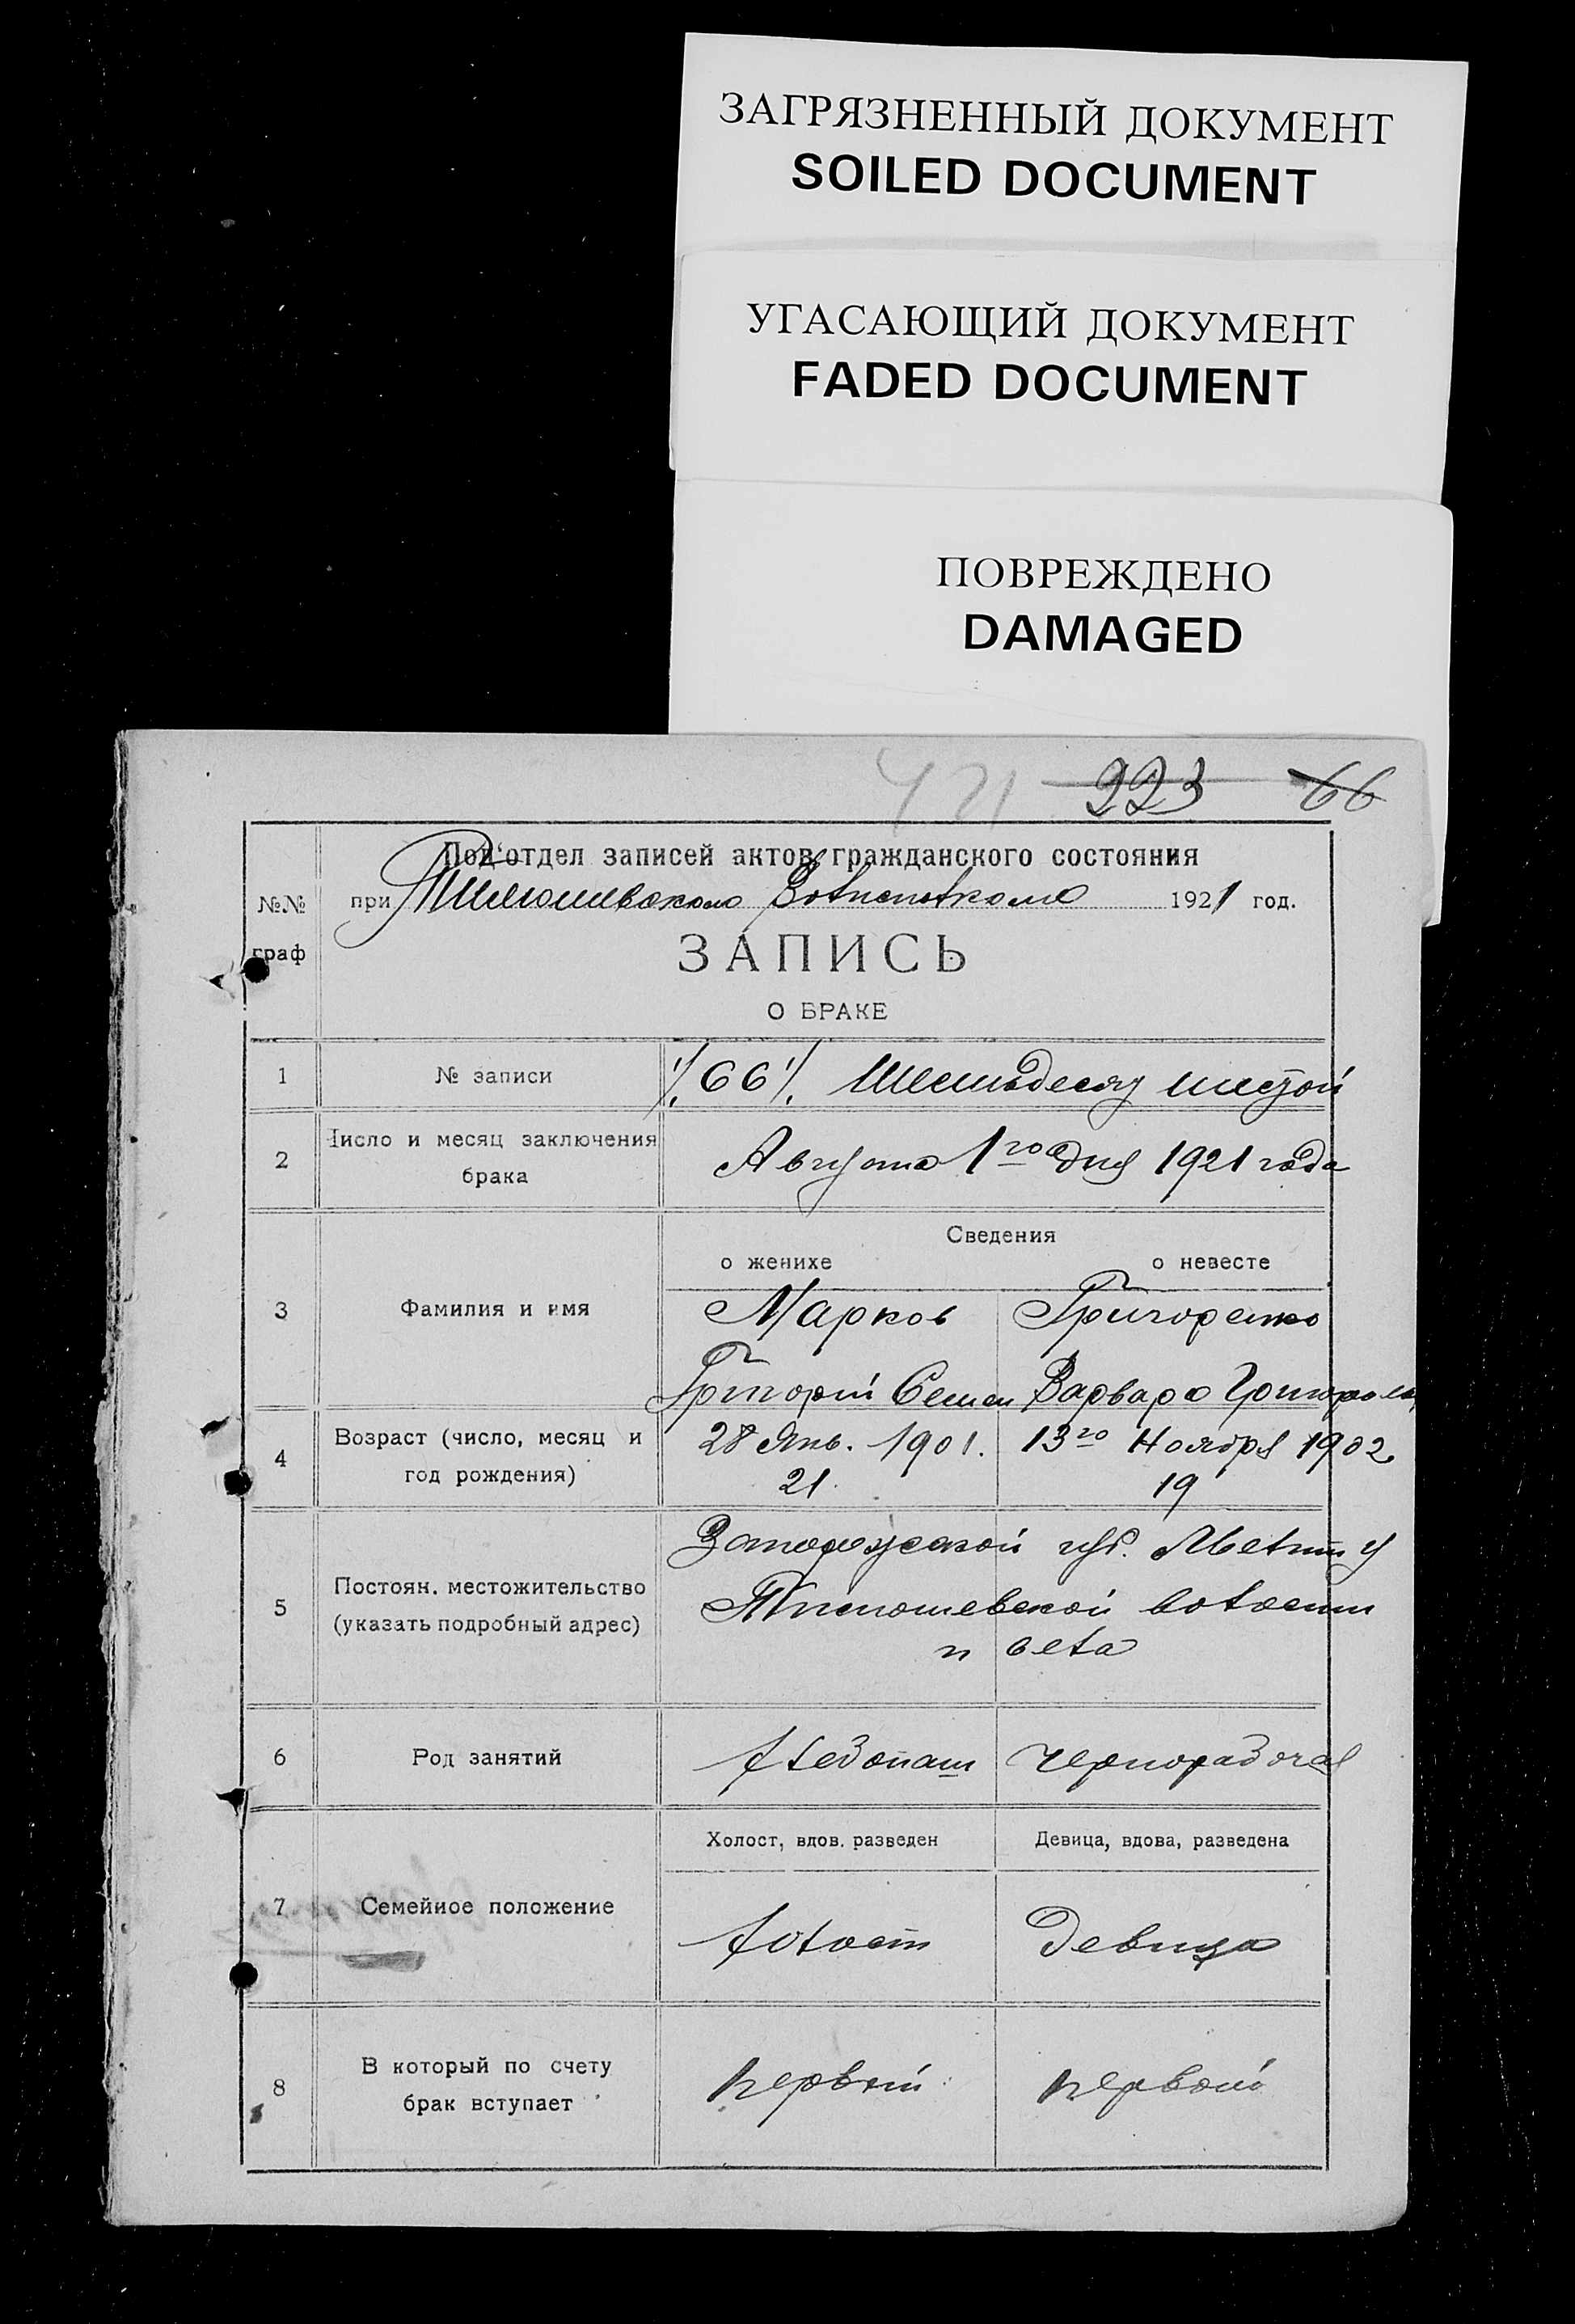 ЗАГРЯЗНЕННЫЙ ДОКУМЕНТ
SOILED DOCUMENT
УГАСАЮЩИЙ ДОКУМЕНТ
FADED DOCUMENT
ПОВРЕЖДЕНО
DAMAGED
421 223 66
Под'отдел записей актов гражданского состояния
№№ при Волисполкома 1921 год.
граф
ЗАПИСЬ
О БРАКЕ
1 № записи 66 Шестьдесят шестой
2 Число и месяц заключения
брака
Августа 1го дня 1921 года
Сведения
о женихе о невесте
3 Фамилия и имя Марков Григоренко
Григорий Семен Варвара Григорьев
4 Возраст (число, месяц и
год рождения)
28 Янв. 1901. 13го Ноября 1902
21 19
5 Постоян. местожительство
(указать подробный адрес)
Запорожской губ. Мелит у
Тимошевской волости
и села
6 Род занятий Хлебопаш чернорабочая
Холост, вдов. разведен Девица, вдова, разведена
7 Семейное положение холост Девица
8 В который по счету
брак вступает
первый первый